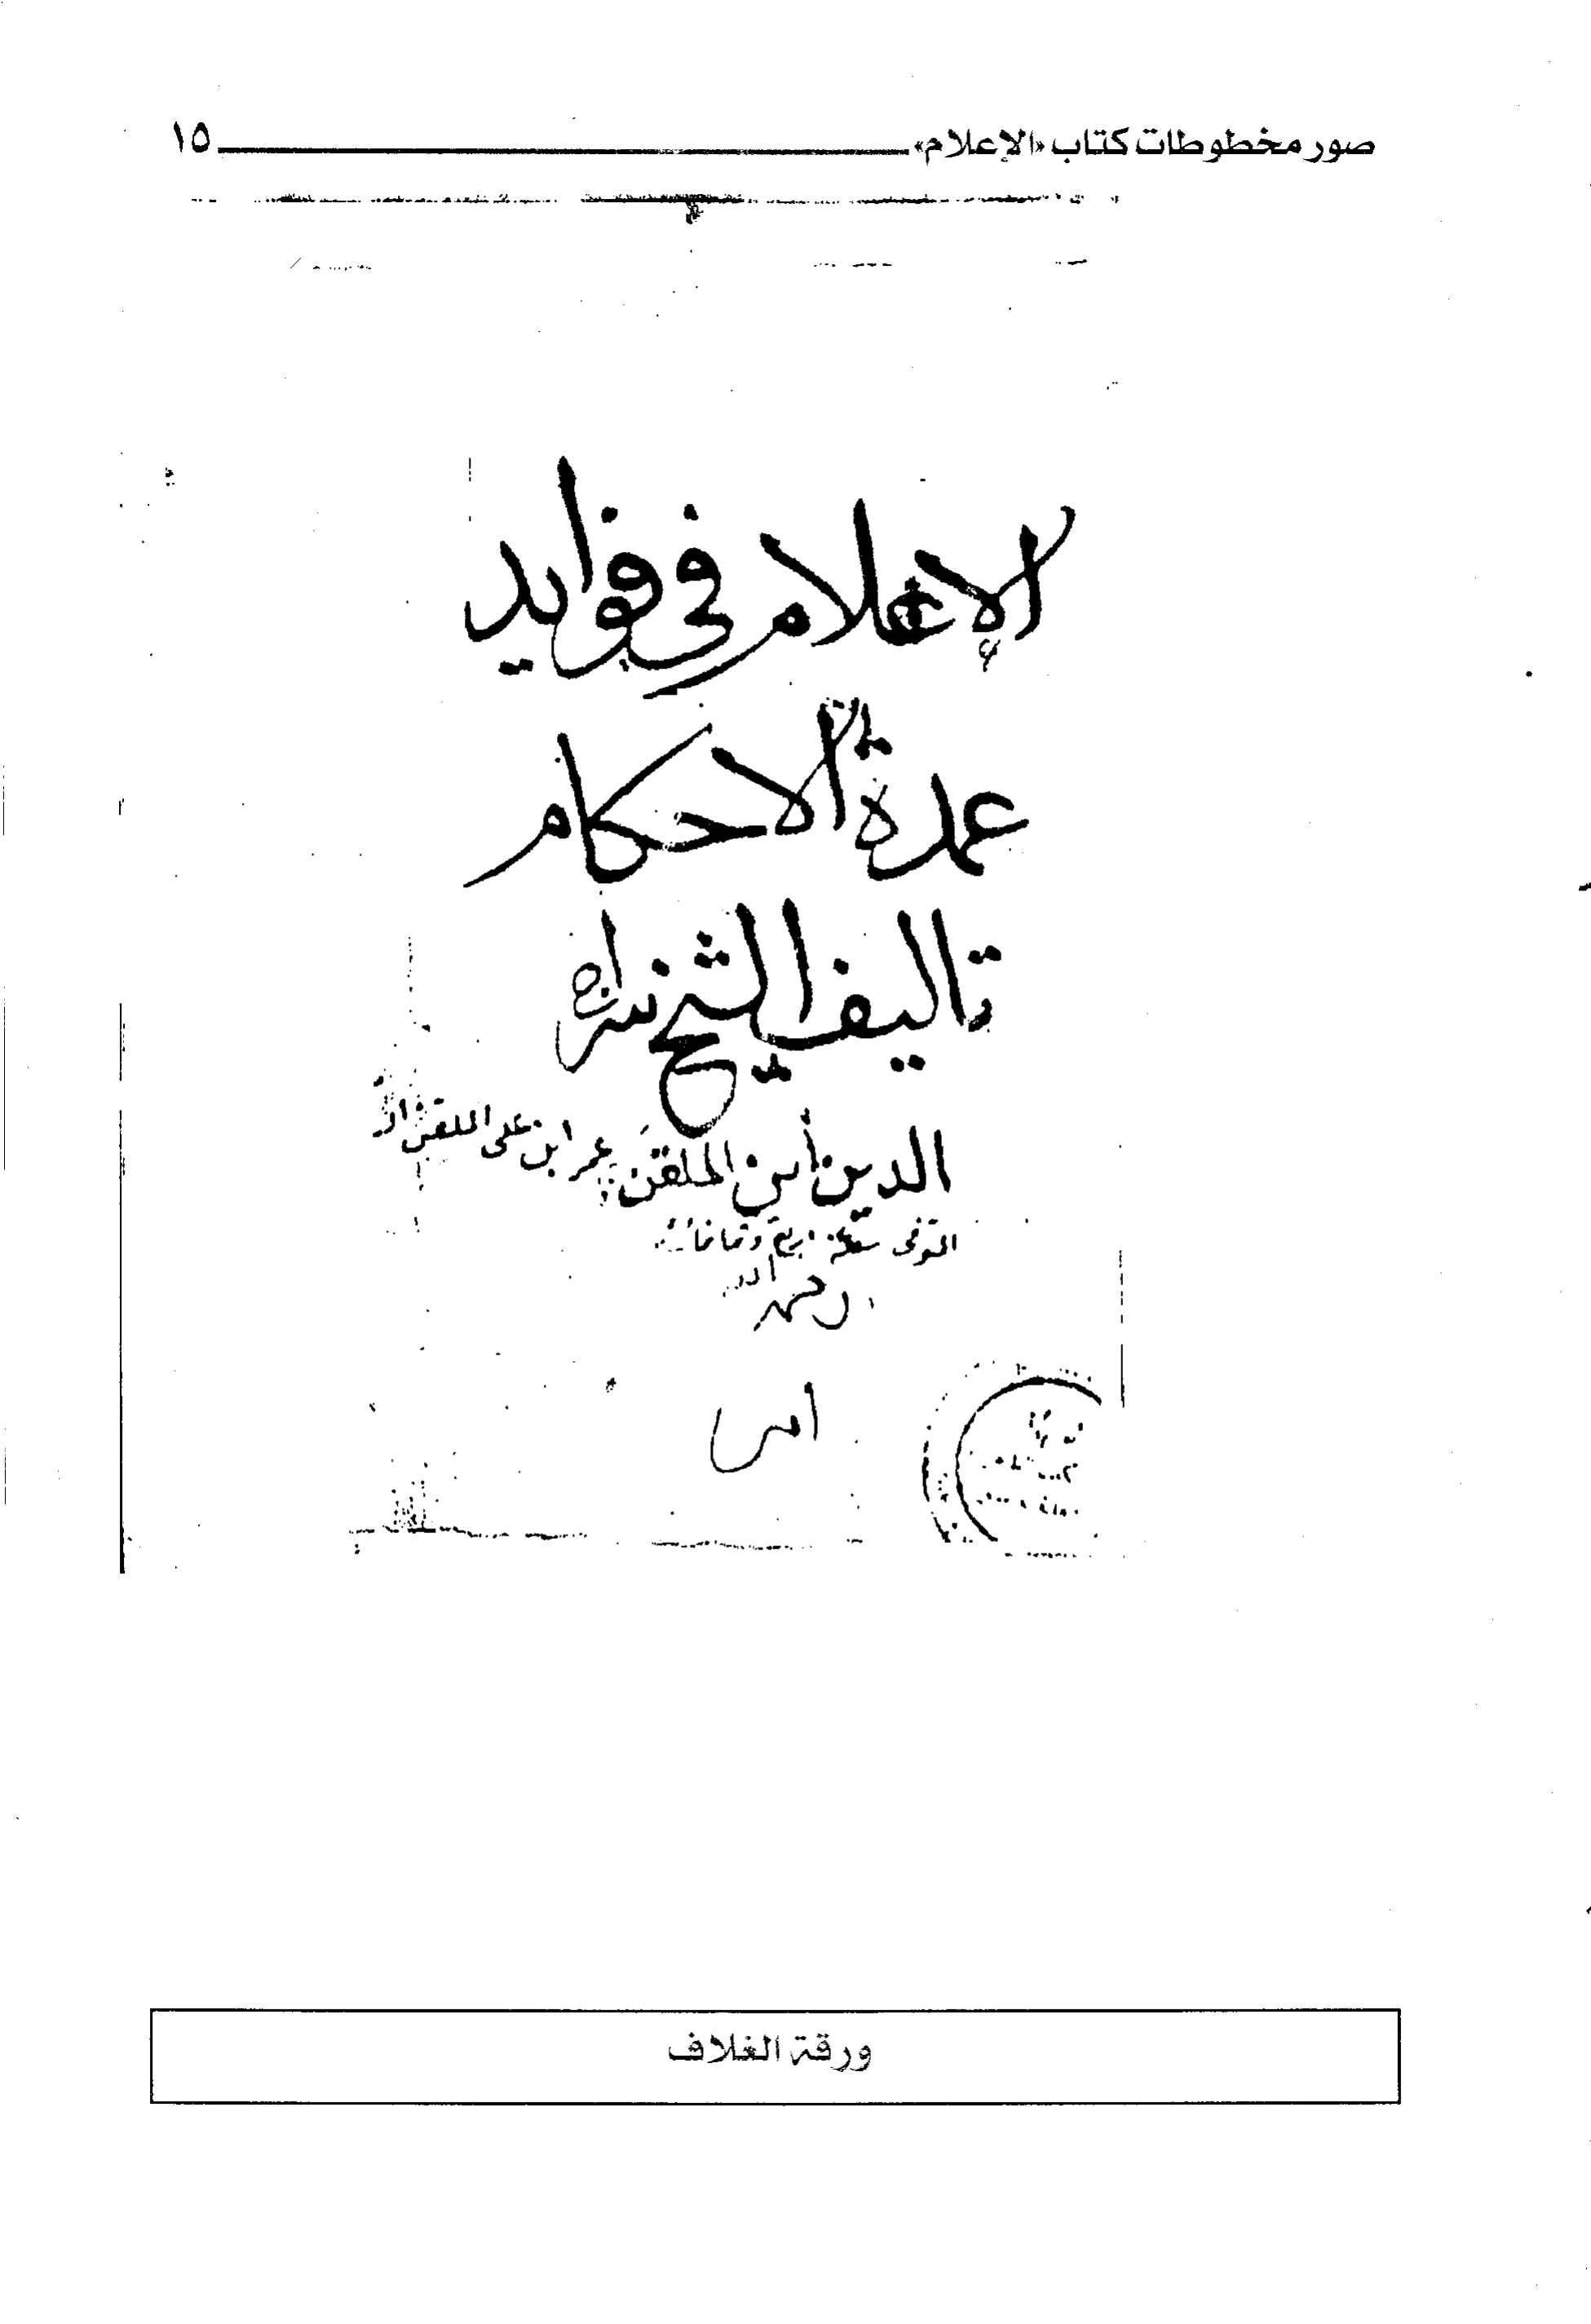 صور مخطوطات كتاب «الإعلام» ١٥
الإعلام في فوايد
عمدة الاحكام
تاليف الشيخ سراج
الدين ابن الملقن عمر ابن على الملقن
المتوفى سنة اربع وثمانمائة
ورقة الغلاف